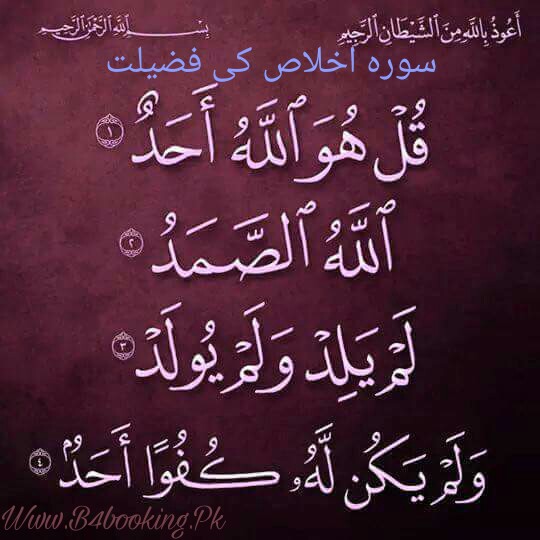 أَعُوذُ بِاللَّهِ مِنَ ٱلشَّيْطَانِ ٱلرَّجِيمِ
بِسْمِ ٱللَّهِ ٱلرَّحْمَٰنِ ٱلرَّحِيمِ
سورہ اخلاص کی فضیلت
قُلْ هُوَ ٱللَّهُ أَحَدٌ ١
ٱللَّهُ ٱلصَّمَدُ ٢
لَمْ يَلِدْ وَلَمْ يُولَدْ ٣
وَلَمْ يَكُن لَّهُۥ كُفُوًا أَحَدٌۢ ٤
Www.B4booking.Pk